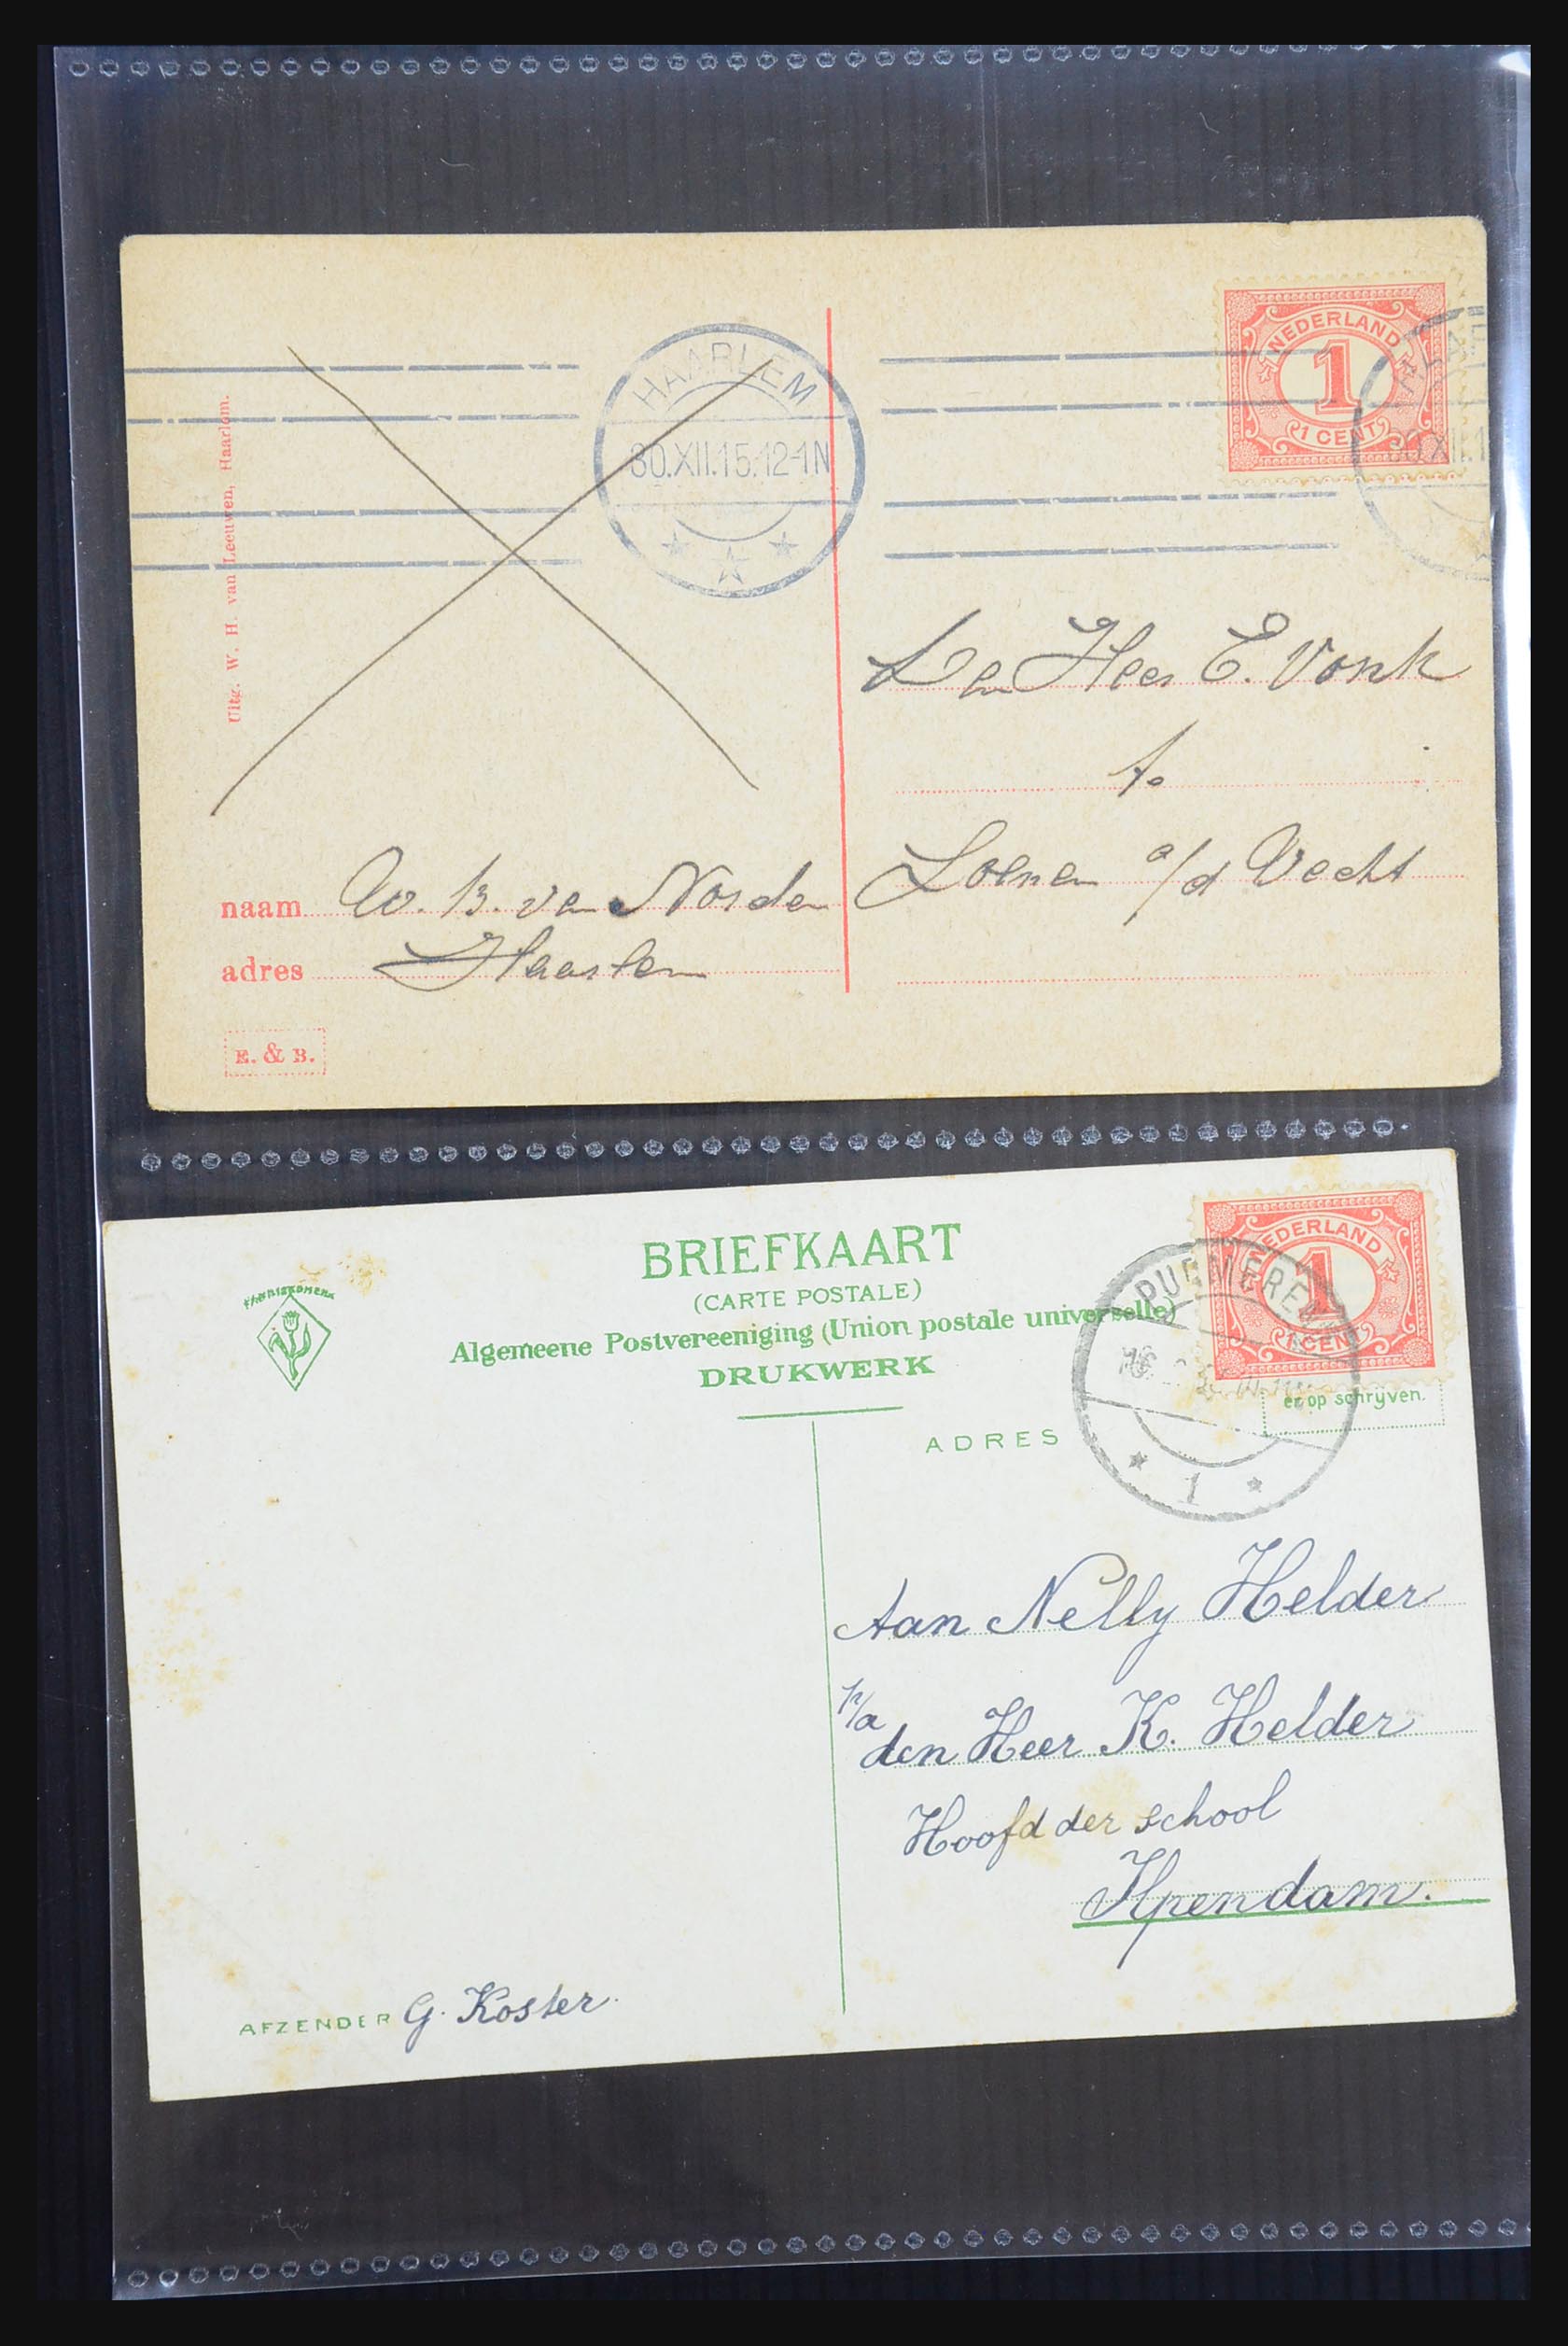 HAARLEM
30.XII.15.12-1N
NEDERLAND
1
1 CENT
Uitg. W. H. van Leeuwen, Haarlem.
Den Heer E. Vonk
te
Loenen a/d Vecht
naam W. B. van Norden
adres Haarlem
E. & B.
BRIEFKAART
(CARTE POSTALE)
Algemeene Postvereeniging (Union postale universelle)
DRUKWERK
FABRIEKSMERK
NEDERLAND
1
1 CENT
PURMEREND
1
er op schrijven.
ADRES
Aan Nelly Helder
p/a
den Heer K. Helder
Hoofd der school
Ilpendam.
AFZENDER G. Koster.